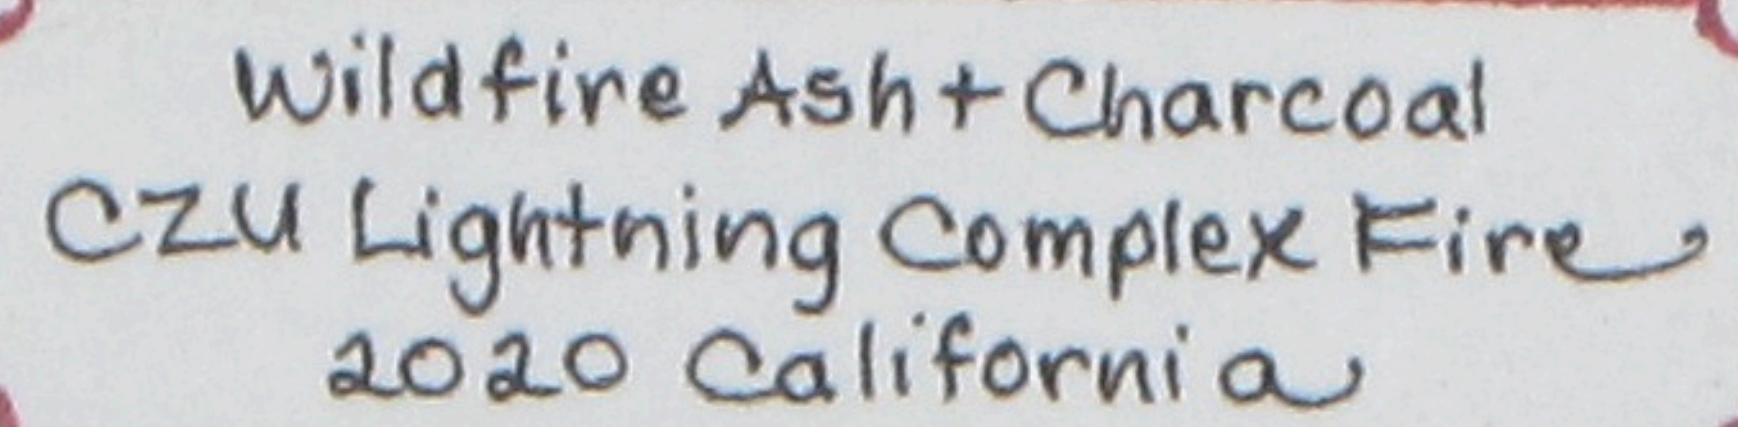 Wildfire Ash + Charcoal
CZU Lightning Complex Fire
2020 California